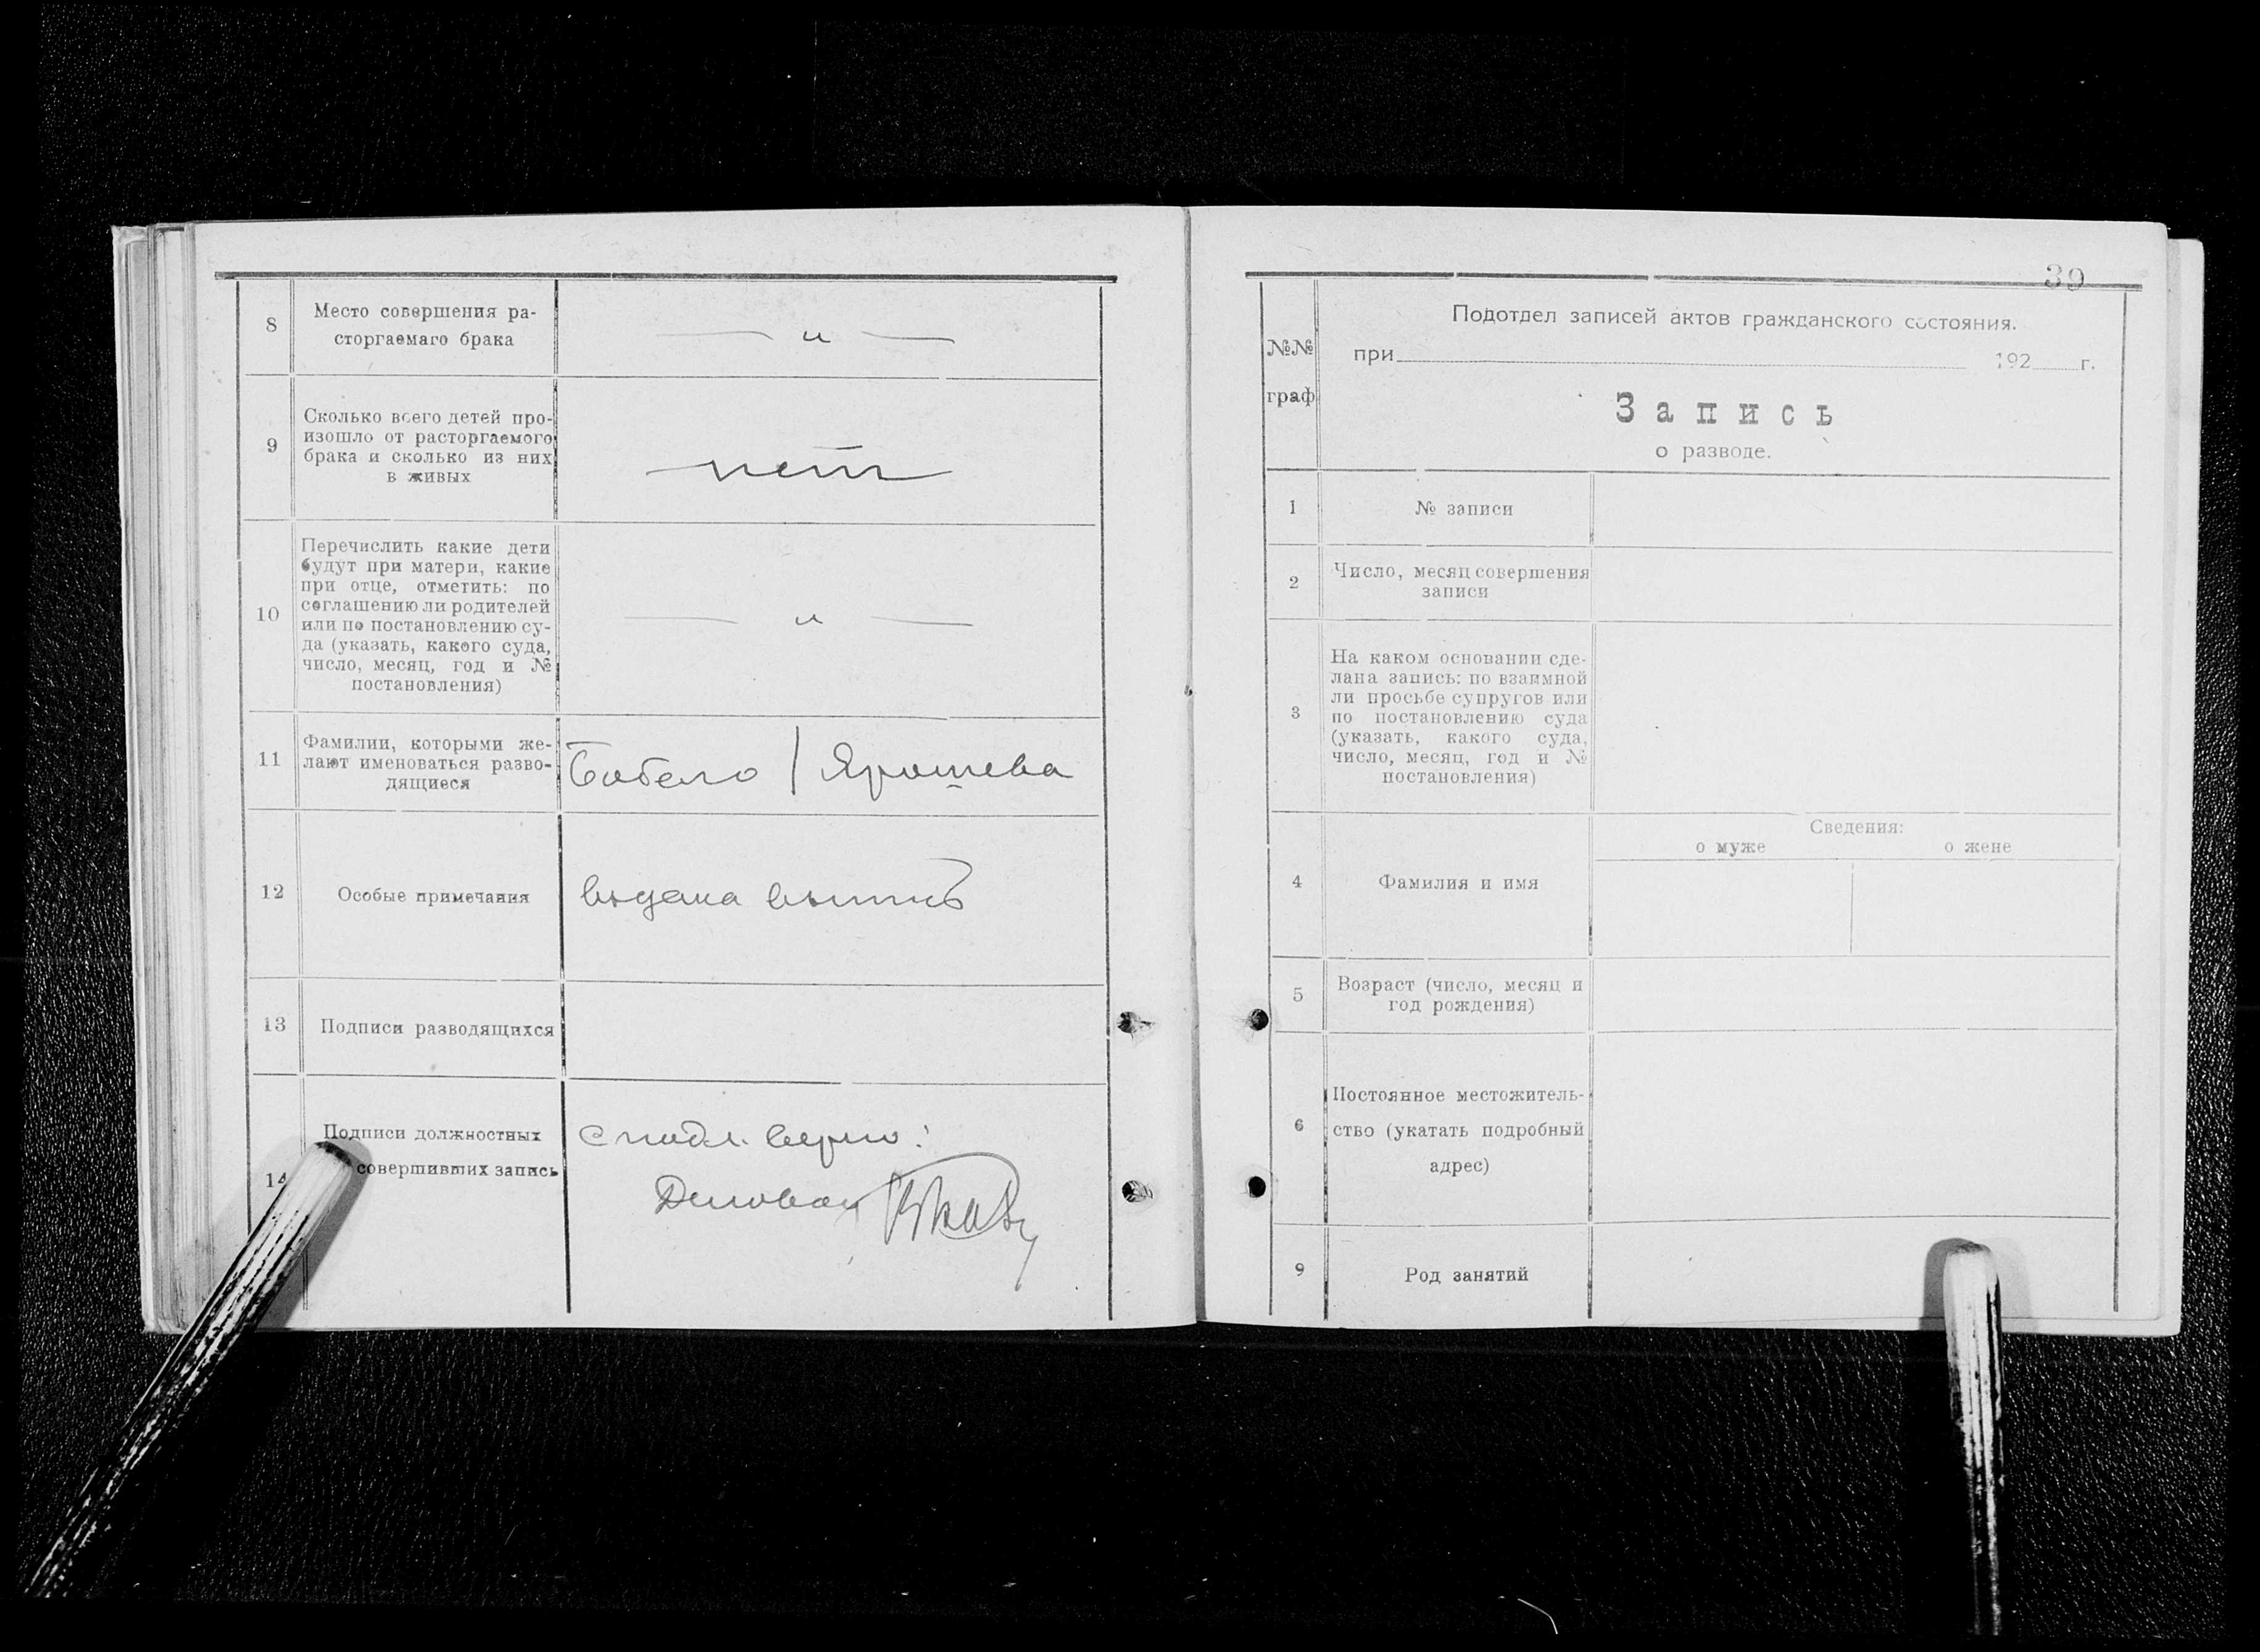 8
Место совершения ра-
сторгаемаго брака
— „ —
9
Сколько всего детей про-
изошло от расторгаемого
брака и сколько из них
в живых
нет
10
Перечислить какие дети
будут при матери, какие
при отце, отметить: по
соглашению ли родителей
или по постановлению су-
да (указать, какого суда,
число, месяц, год и №
постановления)
— „ —
11
Фамилии, которыми же-
лают именоваться разво-
дящиеся
Бабело / Ярошева
12
Особые примечания
выдана выпись
13
Подписи разводящихся
14
Подписи должностных
совершивших запись
С подл. верно:
39
№№
граф
Подотдел записей актов гражданского состояния.
при 192 г.
Запись
о разводе.
1
№ записи
2
Число, месяц совершения
записи
3
На каком основании сде-
лана запись: по взаимной
ли просьбе супругов или
по постановлению суда
(указать, какого суда,
число, месяц, год и №
постановления)
4
Фамилия и имя
Сведения:
о муже о жене
5
Возраст (число, месяц и
год рождения)
6
Постоянное местожитель-
ство (укатать подробный
адрес)
9
Род занятий